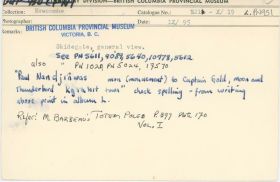 DIVISION—BRITISH COLUMBIA PROVINCIAL MUSEUM
Collection: Newcombe
Catalogue No.:
BRITISH COLUMBIA PROVINCIAL MUSEUM
VICTORIA, B. C.
Photographer:
Date:
Skidegate, general view.
SEE PN 5611, 9084, 5640, 10978,
also PN 1020, PN 5024, 17570
"Paul Nandjiwas man (monument) to Captain Gold, moon and
Thunderbird
check spelling - from writing
above print in album L.
Refer: M. BARBEAU'S TOTEM POLES P.
VOL. I